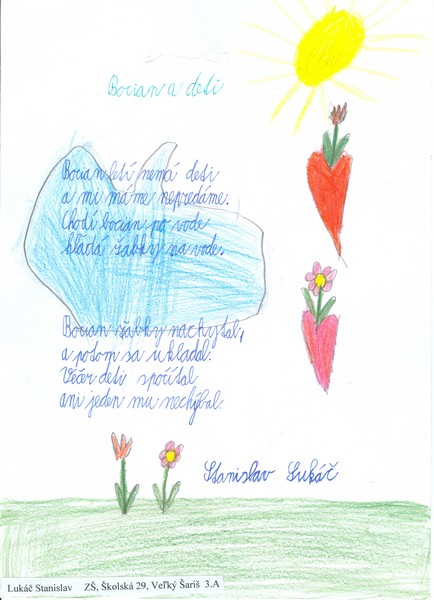 Bocian a deti
Bocian letí nemá deti
a mi máme nepredáme.
Chodí bocian po vode
hľadá žabky na vode.
Bocian žabky nachytal,
a potom sa ukladal.
Večer deti spočítal
ani jeden mu nechýbal.
Stanislav Lukáč
Lukáč Stanislav ZŠ, Školská 29, Veľký Šariš 3.A